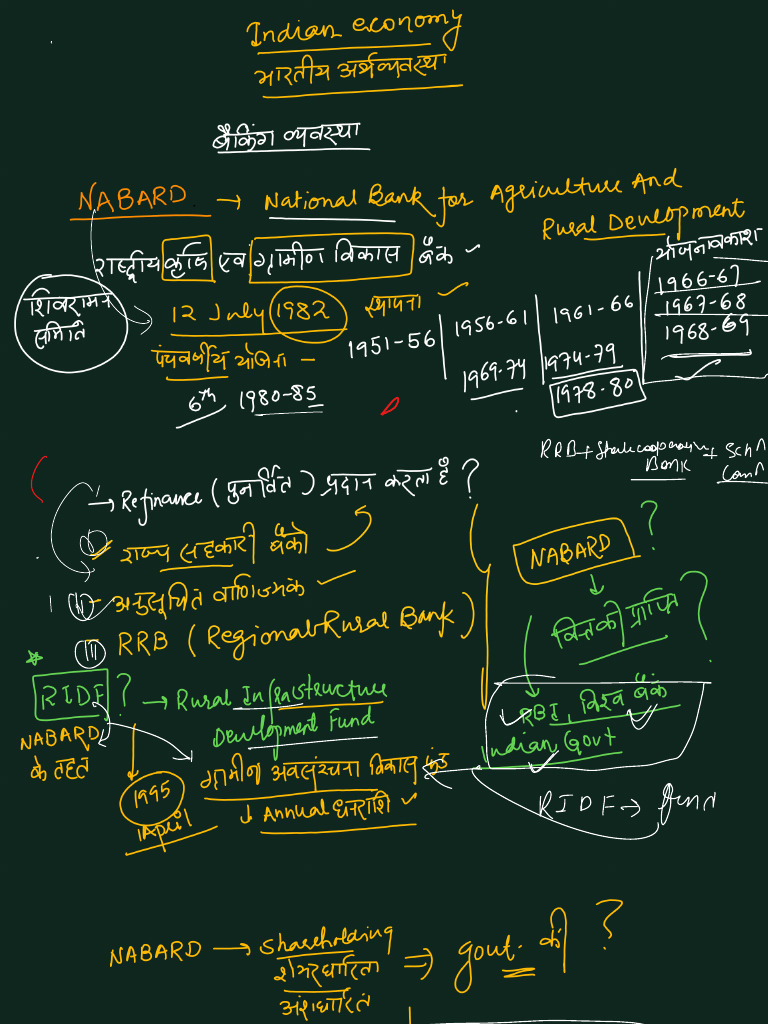 Indian economy
भारतीय अर्थव्यवस्था
बैंकिंग व्यवस्था
NABARD → National Bank for Agriculture And
Rural Development
राष्ट्रीय कृषि एवं ग्रामीण विकास बैंक ✓
शिवरामन
समिति
12 July 1982 स्थापना ✓
पंचवर्षीय योजना -
6th 1980-85
1951-56
1956-61
1969-74
1961-66
1974-79
1978-80
योजनावकाश
1966-67
1967-68
1968-69
RRB + State cooperative + Sch
Bank
→ Refinance (पुनर्वित्त) प्रदान करता है ?
राज्य सहकारी बैंको
ii अनुसूचित वाणिज्यिक ✓
iii RRB (Regional Rural Bank)
NABARD ?
↓
वित्त की प्राप्ति ?
RBI, विश्व बैंक
Indian Govt
RIDF → फण्ड
RIDF ? → Rural Infrastructure
Development Fund
NABARD
के तहत
1995
April
ग्रामीण अवसंरचना विकास फंड
↓ Annual धनराशि ✓
NABARD → Shareholding ⇒ govt. की ?
शेयरधारिता
अंशधारिता